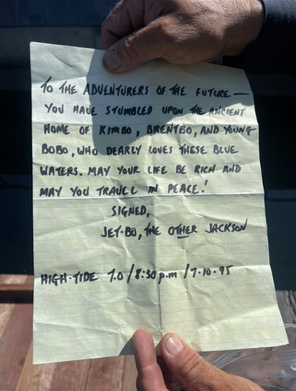 TO THE ADVENTURERS OF THE FUTURE —
YOU HAVE STUMBLED UPON THE ANCIENT
HOME OF KIMBO, BRENTBO, AND YOUNG
BOBO, WHO DEARLY LOVES THESE BLUE
WATERS. MAY YOUR LIFE BE RICH AND
MAY YOU TRAVEL IN PEACE!
SIGNED,
JET-BO, THE OTHER JACKSON
HIGH-TIDE 7.0 / 8:30 p.m / 7-10-95